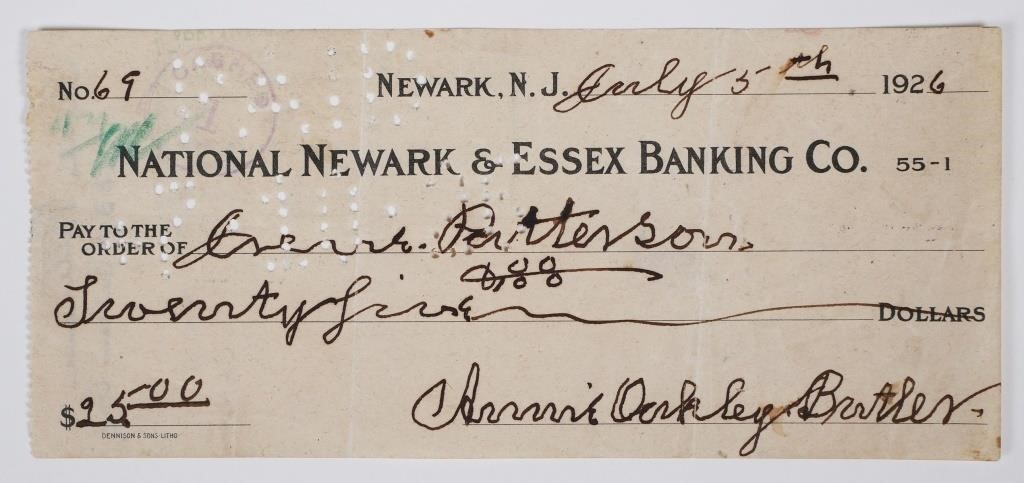 No. 69 NEWARK, N. J. July 5th 1926
NATIONAL NEWARK & ESSEX BANKING CO. 55-1
PAY TO THE ORDER OF Irene Patterson
00/00
Twenty five DOLLARS
$25.00 Annie Oakley Butler.
DENNISON & SONS-LITHO